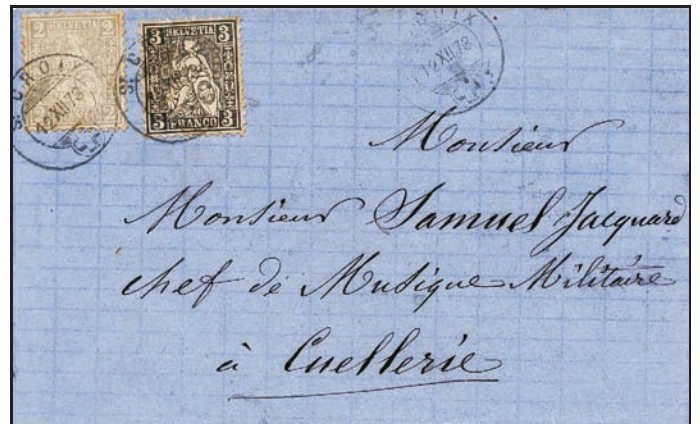 2 HELVETIA 2
2 2
3 HELVETIA 3
3 FRANCO 3
St. CROIX
12 XII 78
12 XII 78
Monsieur
Monsieur Samuel Jacquard
chef de Musique Militaire
à Cuellerie